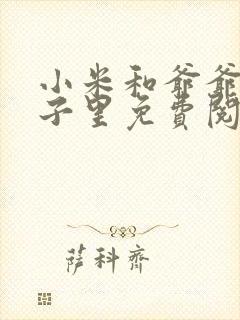 小米和爷爷
子里免費閱
萨科齊